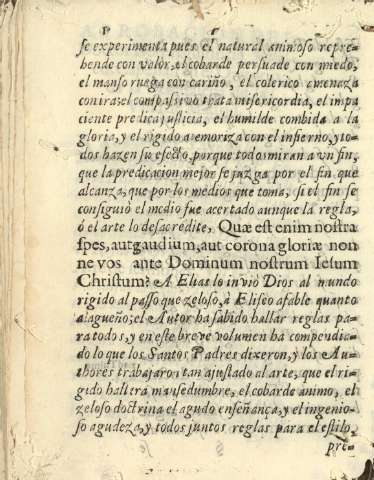 se experimenta pues el natural animoso repre-
hende con valor, el cobarde persuade con miedo,
el manso ruega con cariño, el colerico amenaza
con ira: el compasivo trata misericordia, el impa
ciente predica justicia, el humilde combida a la
gloria, y el rigido atemoriza con el infierno, y to-
dos hazen su efecto, porque todo miran a vn fin,
que la predicacion mejor se juzga por el fin que
alcanza, que por los medios que toma, si el fin se
consiguiò el medio fue acertado aunque la regla,
ò el arte lo desacredite. Quæ est enim nostra
spes, aut gaudium, aut corona gloriæ non
ne vos ante Dominum nostrum Iesum
Christum? A Elias lo invió Dios al mundo
rigido al passo que zeloso, à Eliseo afable quanto
alagueño; el Autor ha sabido hallar reglas pa
ra todos, y en este breve volumen ha compendia-
do lo que los Santos Padres dixeron, y los Au-
thores trabajaron tan ajustado al arte, que el ri-
gido hallera mansedumbre, el cobarde animo, el
zeloso doctrina el agudo enseñança, y el ingenio-
so agudeza, y todos juntos reglas para el estilo,
pre-